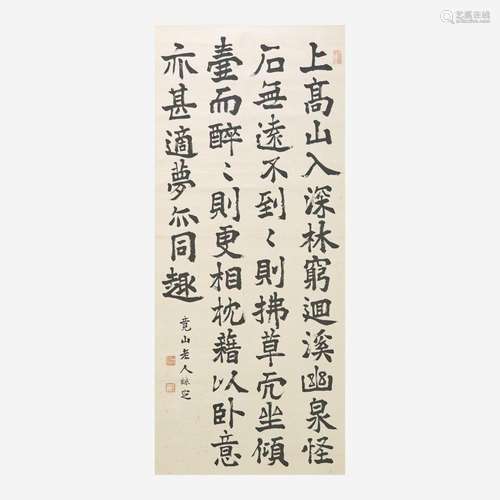 上髙山入深林窮迴溪幽泉怪
石無遠不到〻則拂草而坐傾
壷而醉〻則更相枕藉以卧意
亦甚適夢亦同趣
竟山老人繇定
艺狐在线